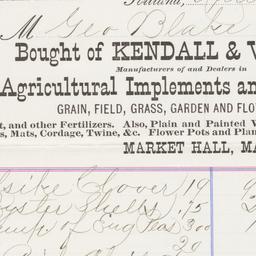 Portland,
M Geo Blake
Bought of KENDALL & W
Manufacturers of and Dealers in
Agricultural Implements an
GRAIN, FIELD, GRASS, GARDEN AND FLO
t, and other Fertilizers. Also, Plain and Painted W
s, Mats, Cordage, Twine, &c. Flower Pots and Plan
MARKET HALL, MA
lsike Clover 19
oyster Shells .75
of Eng Peas 300
20